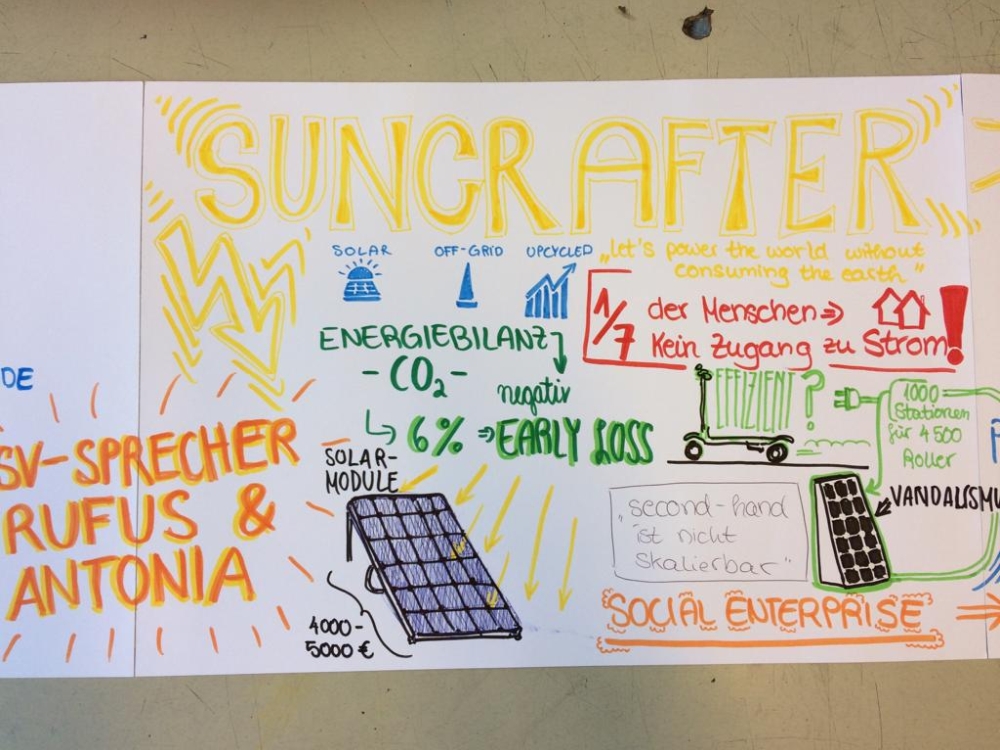 SUNCRAFTER
SOLAR
OFF-GRID
UPCYCLED
„let's power the world without
consuming the earth"
1/7 der Menschen ⇒
Kein Zugang zu Strom!
ENERGIEBILANZ
- CO₂ -
negativ
↳ 6% ⇒ EARLY LOSS
EFFIZIENT?
1000
Stationen
für 4500
Roller
DE
SV-SPRECHER
RUFUS &
ANTONIA
SOLAR-
MODULE
4000-
5000 €
„second-hand
ist nicht
skalierbar"
VANDALISMU
SOCIAL ENTERPRISE